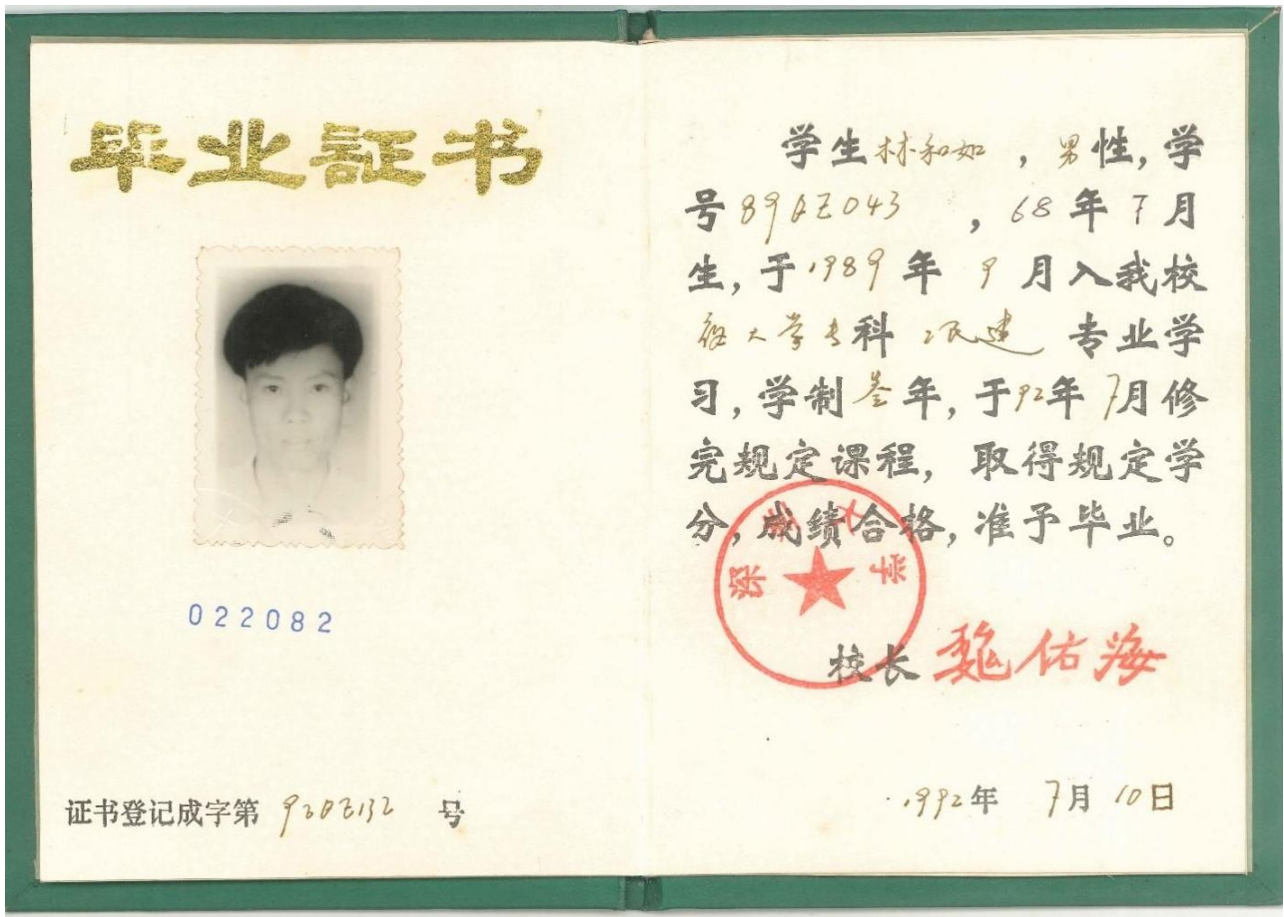 毕业証书
022082
证书登记成字第 920Z132 号
学生林和如，男性，学
号89QZ043，68年7月
生，于1989年9月入我校
大学专科 民建 专业学
习，学制叁年，于92年7月修
完规定课程，取得规定学
分，成绩合格，准予毕业。
深圳大学
校长 魏佑海
1992年7月10日